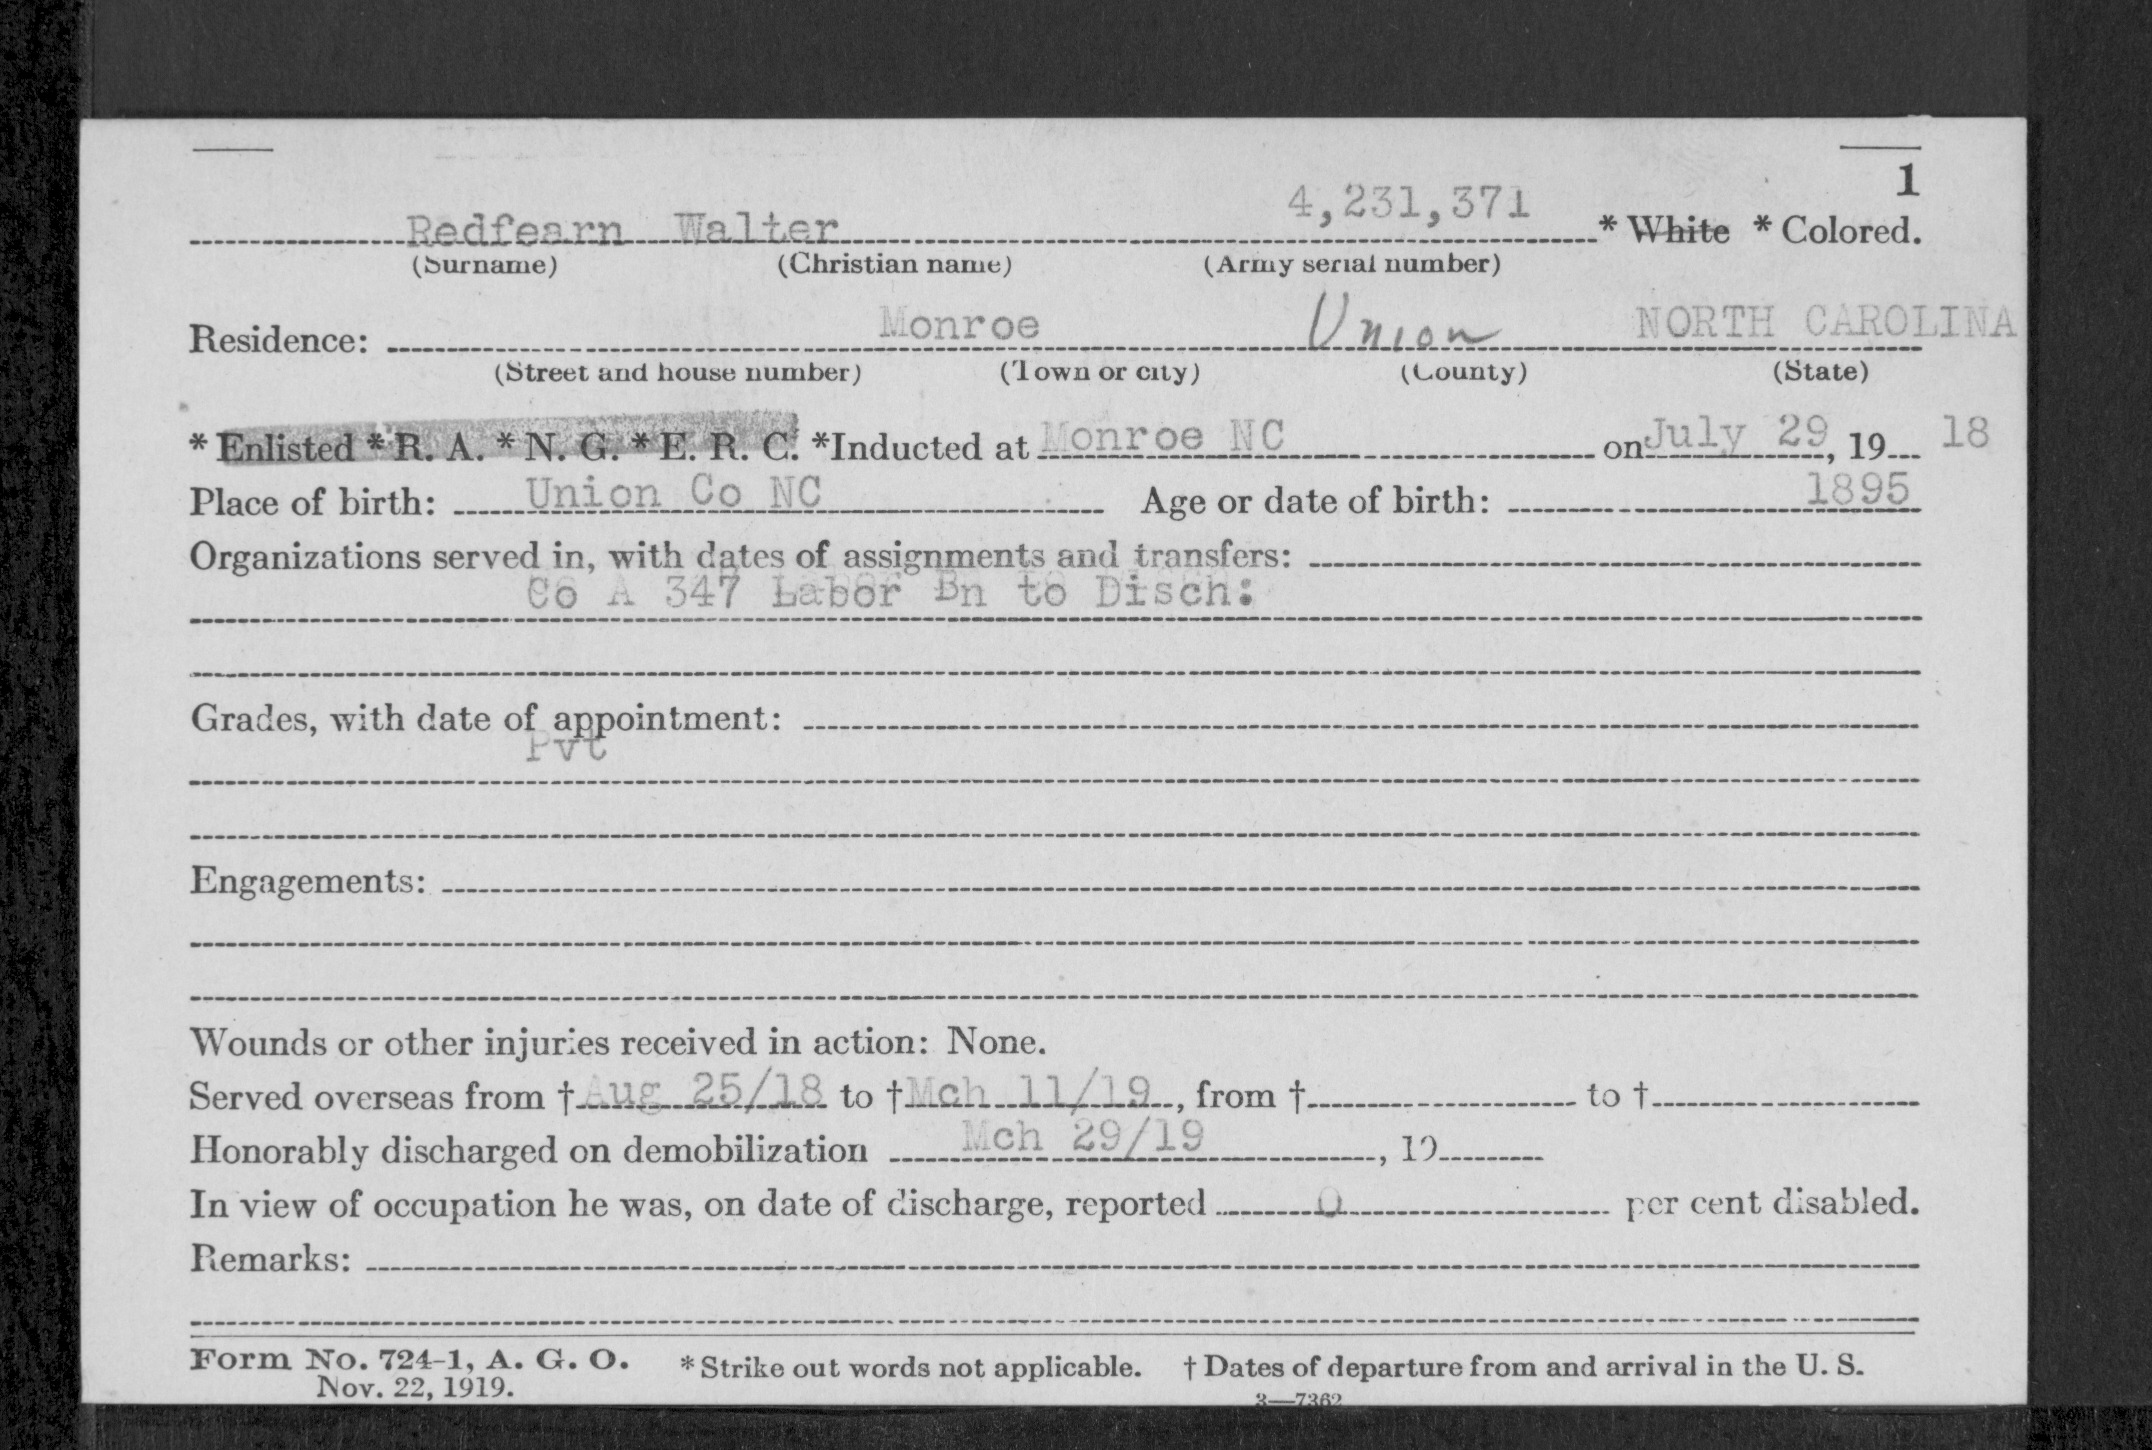 1
Redfearn Walter 4,231,371 * White * Colored.
(Surname) (Christian name) (Army serial number)
Residence: Monroe Union NORTH CAROLINA
(Street and house number) (Town or city) (County) (State)
* Enlisted * R. A. * N. G. * E. R. C. *Inducted at Monroe NC on July 29, 19 18
Place of birth: Union Co NC Age or date of birth: 1895
Organizations served in, with dates of assignments and transfers:
Co A 347 Labor Bn to Disch:
Grades, with date of appointment:
Pvt
Engagements:
Wounds or other injuries received in action: None.
Served overseas from † Aug 25/18 to † Mch 11/19, from † to †
Honorably discharged on demobilization Mch 29/19, 19
In view of occupation he was, on date of discharge, reported 0 per cent disabled.
Remarks:
Form No. 724-1, A. G. O. * Strike out words not applicable. † Dates of departure from and arrival in the U. S.
Nov. 22, 1919. 3—7362